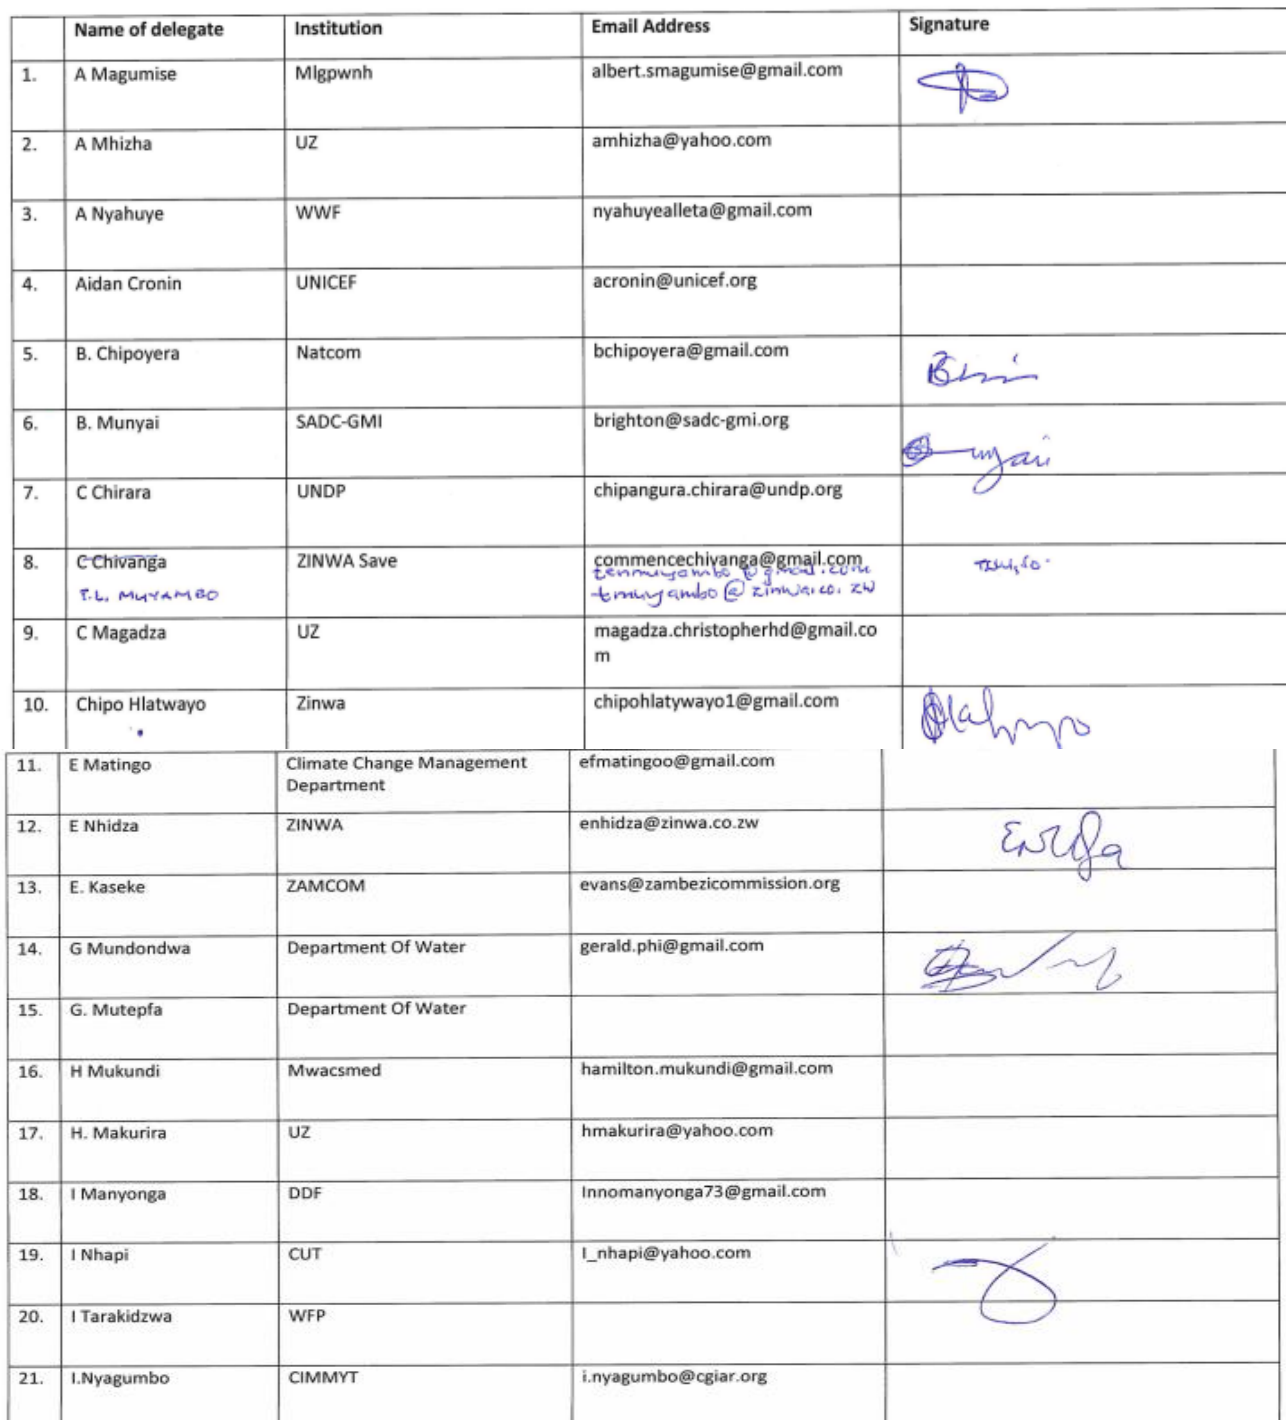 Name of delegate Institution Email Address Signature
1. A Magumise Mlgpwnh albert.smagumise@gmail.com
2. A Mhizha UZ amhizha@yahoo.com
3. A Nyahuye WWF nyahuyealleta@gmail.com
4. Aidan Cronin UNICEF acronin@unicef.org
5. B. Chipoyera Natcom bchipoyera@gmail.com
6. B. Munyai SADC-GMI brighton@sadc-gmi.org
7. C Chirara UNDP chipangura.chirara@undp.org
8. C Chivanga ZINWA Save commencechivanga@gmail.com
tenmuyambo@gmail.com
T.L. MUYAMBO tmuyambo@zinwa.co.zw
9. C Magadza UZ magadza.christopherhd@gmail.co
m
10. Chipo Hlatwayo Zinwa chipohlatywayo1@gmail.com
11. E Matingo Climate Change Management efmatingoo@gmail.com
Department
12. E Nhidza ZINWA enhidza@zinwa.co.zw
13. E. Kaseke ZAMCOM evans@zambezicommission.org
14. G Mundondwa Department Of Water gerald.phi@gmail.com
15. G. Mutepfa Department Of Water
16. H Mukundi Mwacsmed hamilton.mukundi@gmail.com
17. H. Makurira UZ hmakurira@yahoo.com
18. I Manyonga DDF Innomanyonga73@gmail.com
19. I Nhapi CUT I_nhapi@yahoo.com
20. I Tarakidzwa WFP
21. I.Nyagumbo CIMMYT i.nyagumbo@cgiar.org